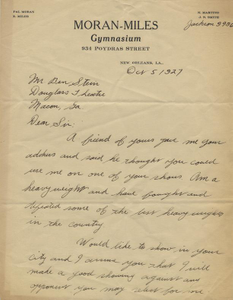 PAL MORAN
MORAN-MILES
Gymnasium
931 POYDRAS STREET
NEW ORLEANS, LA.
Oct 5 1927
Mr Ben Stein
Douglass Theatre
Macon, Ga
Dear Sir
A friend of yours gave me your
address and said he thought you could
use me on one of your shows Am a
heavyweight and have fought and
defeated some of the best heavyweights
in the country
Would like to show in your
city and I assure you that I will
make a good showing against any
opponent you may select for me